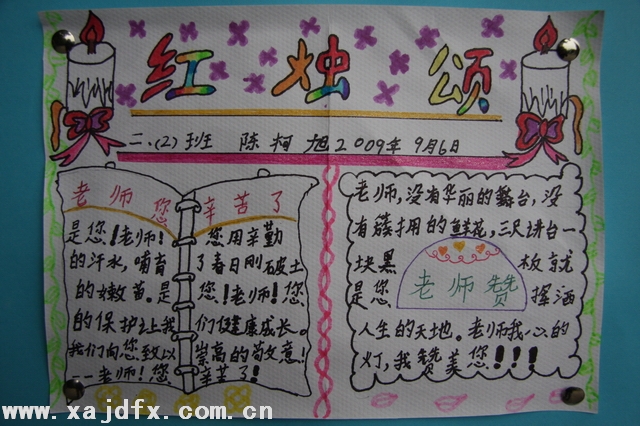 红烛颂
二.(2)班 陈柯旭2009年9月6日
老师您 辛苦了
是您!老师! 您用辛勤
的汗水,哺育 了春日刚破土
的嫩苗。是 您!老师!您
的保护让我 们健康成长。
我们向您致以 崇高的敬意!
——老师!您 辛苦了!
老师,没有华丽的舞台,没
有簇拥的鲜花,三尺讲台一
块黑 板就
是您 挥洒
人生的天地。老师我心的
灯,我赞美您!!!
老师赞
www.xajdfx.com.cn